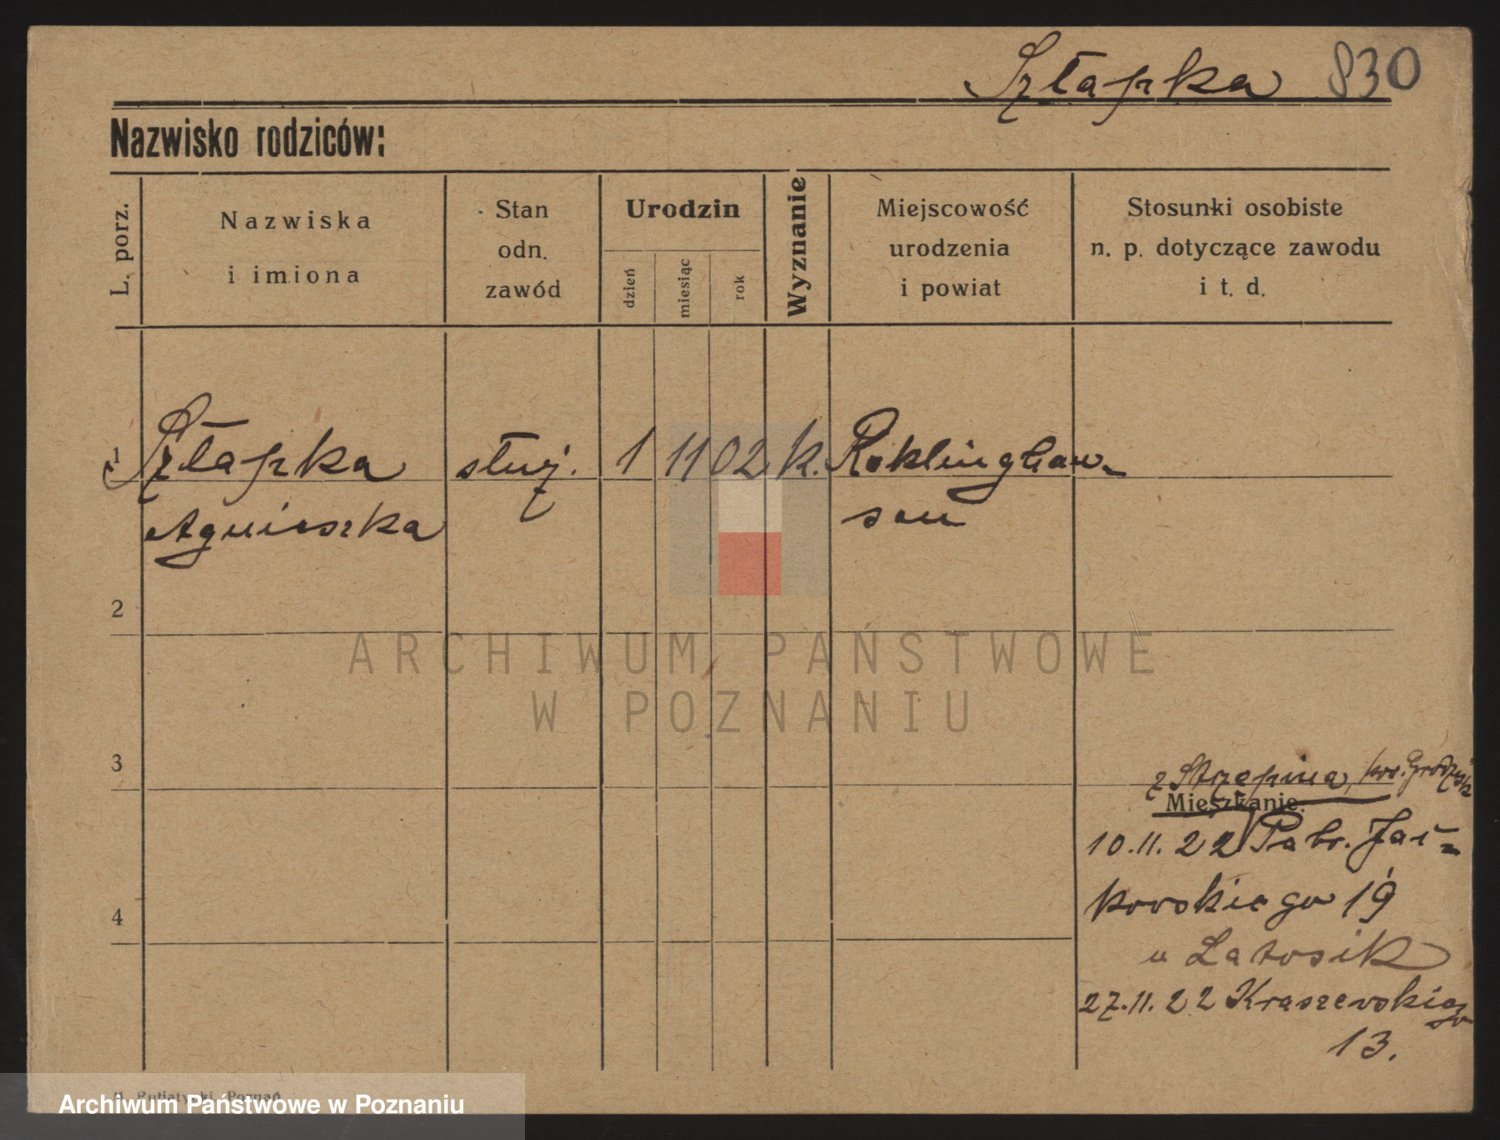 Szłapka 830
Nazwisko rodziców:
L. porz.
Nazwiska
i imiona
Stan
odn.
zawód
Urodzin
dzień
miesiąc
rok
Wyznanie
Miejscowość
urodzenia
i powiat
Stosunki osobiste
n. p. dotyczące zawodu
i t. d.
1 Szłapka służ. 1 11 02 k. Roklinghau-
Agnieszka sen
2
ARCHIWUM PAŃSTWOWE
W POZNANIU
3
z Strzępina, pow. Grodzisk
Mieszkanie.
10.11.22 Patr. Jać-
kowskiego 19
4
u Latosik
27.11.22 Kraszewskiego
13.
Poznań
Archiwum Państwowe w Poznaniu